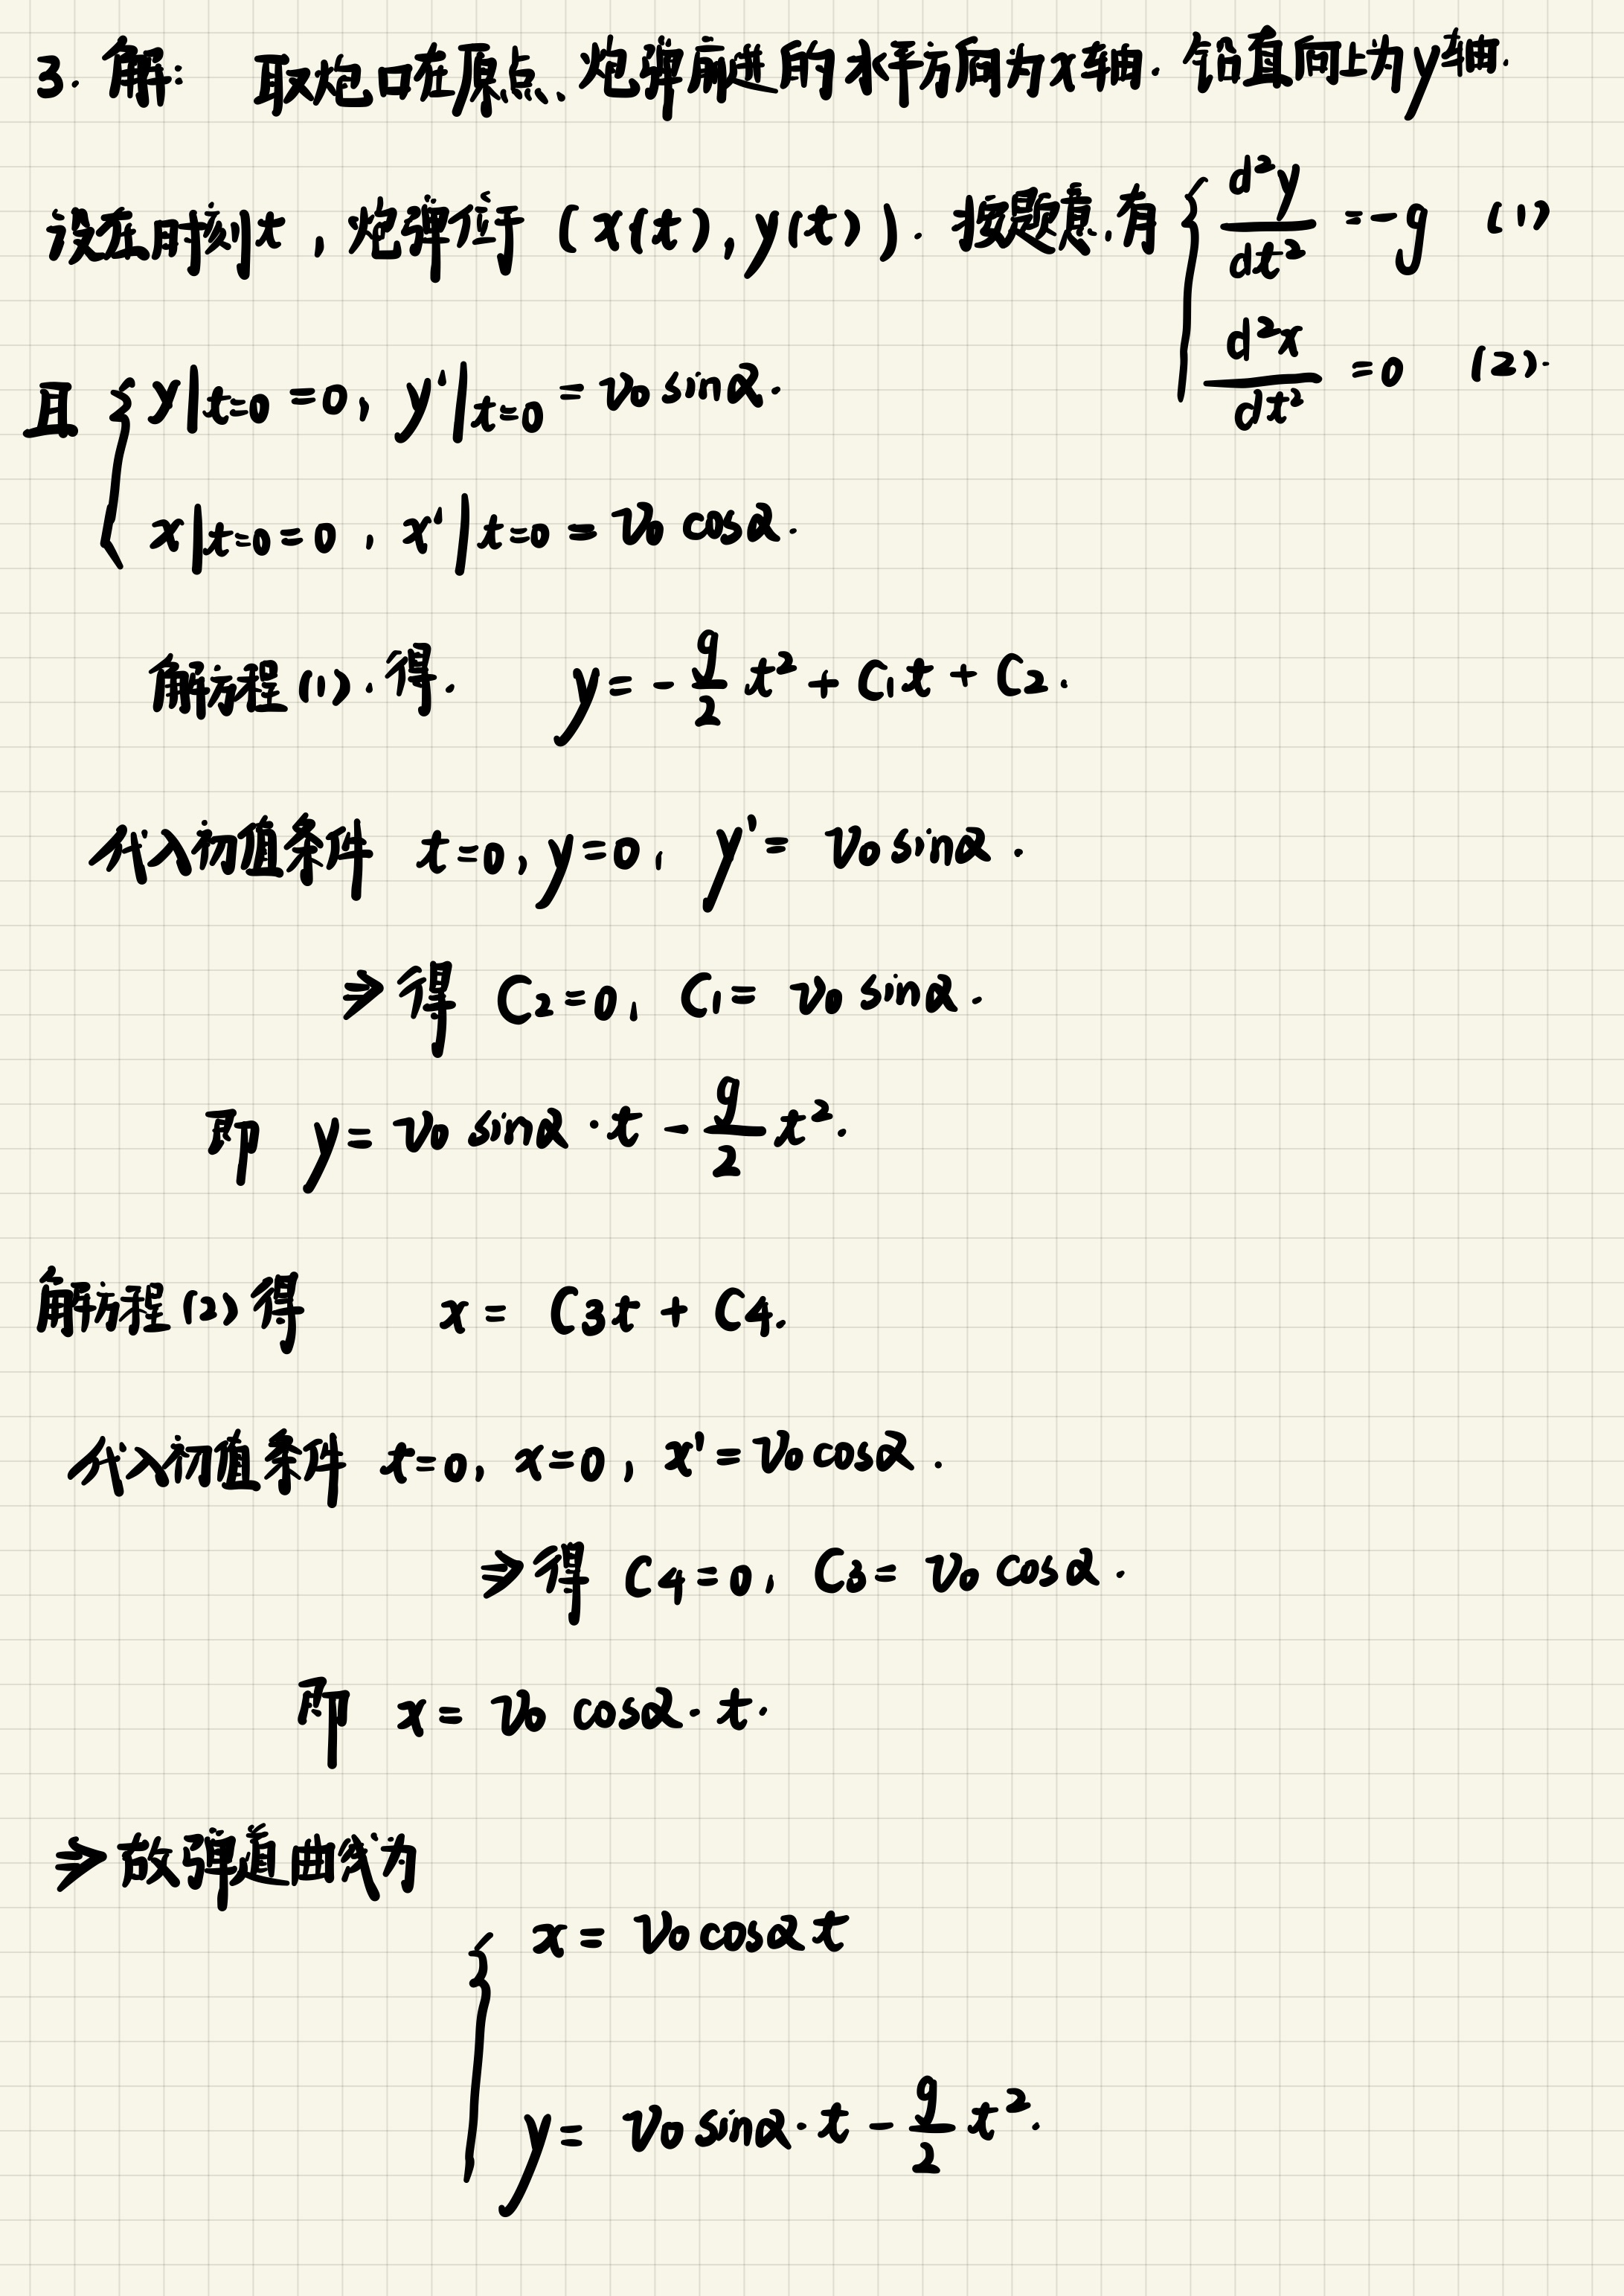 3. 解: 取炮口在原点、炮弹前进的水平方向为x轴. 铅直向上为y轴.
设在时刻t, 炮弹位于 (x(t), y(t)). 按题意, 有 { d²y/dt² = -g (1)
d²x/dt² = 0 (2).
且 { y|t=0 = 0, y'|t=0 = v₀ sinα.
x|t=0 = 0, x'|t=0 = v₀ cosα.
解方程(1). 得. y = - g/2 t² + C₁t + C₂.
代入初值条件 t=0, y=0, y' = v₀ sinα.
⇒ 得 C₂=0, C₁= v₀ sinα.
即 y = v₀ sinα · t - g/2 t².
解方程(2) 得 x = C₃t + C₄.
代入初值条件 t=0, x=0, x' = v₀ cosα.
⇒ 得 C₄=0, C₃= v₀ cosα.
即 x = v₀ cosα · t.
⇒ 故弹道曲线为
{ x = v₀ cosα t
y = v₀ sinα · t - g/2 t².